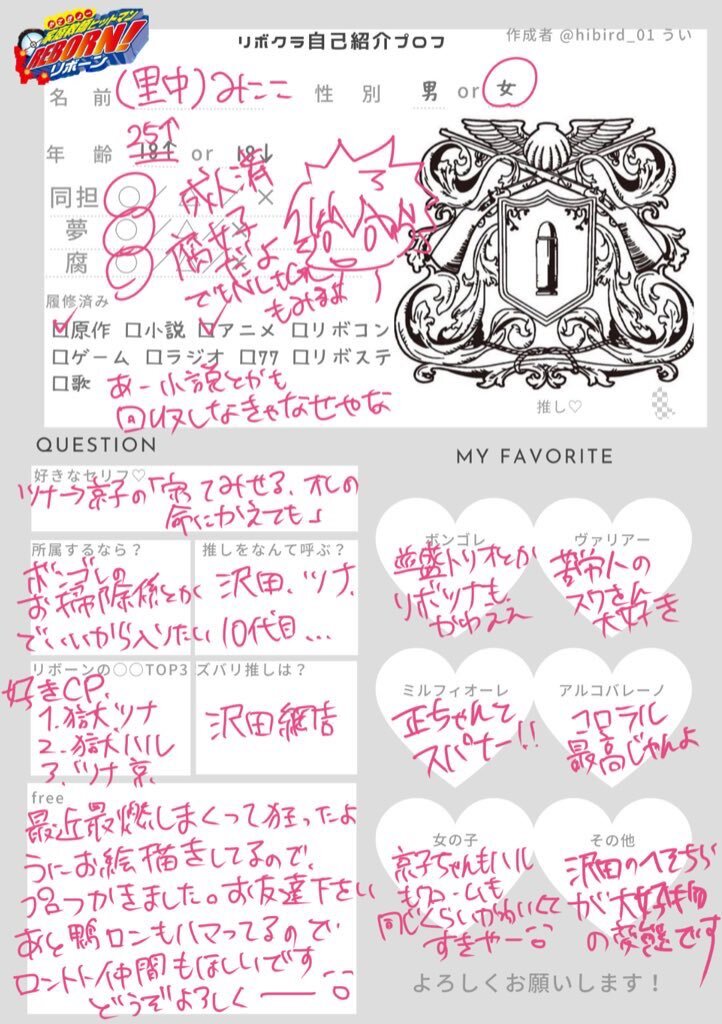 かてきょー
家庭教師ヒットマン
REBORN!
リボーン
リボクラ自己紹介プロフ
作成者 @hibird_01 うい
名 前 (里中)みここ 性 別 男 or 女
25↑
年 齢 18↑ or 18↓
同担 ○／△／×
夢 ○／△／×
腐 ○／△／×
成人済
腐女子
だよ
でもNLもGLも
もみるよ
履修済み
☑原作 □小説 ☑アニメ □リボコン
□ゲーム □ラジオ □77 □リボステ
□歌 あー小説とかも
回収しなきゃなせやな
推し♡
QUESTION
好きなセリフ♡
ツナ→京子の「守ってみせる、オレの
命にかえても」
所属するなら？
ボンゴレの
お掃除係とか
でいいから入りたい
推しをなんて呼ぶ？
沢田、ツナ、
10代目…
リボーンの○○TOP3
好きCP、
1.獄ツナ
2.獄ハル
3.ツナ京
ズバリ推しは？
沢田綱吉
free
最近再燃しまくって狂ったよ
うにお絵描きしてるので、
プロフかきました。お友達下さい
あと鴨ロンもハマってるので
ロントト仲間もほしいです
どうぞよろしくー
MY FAVORITE
ボンゴレ
並盛トリオとか
リボツナも
かわええ
ヴァリアー
苦労人の
スクさん
大好き
ミルフィオーレ
正ちゃんて
スパナー!!
アルコバレーノ
コロラル
最高じゃんよ
女の子
京子ちゃんもハル
もクロームも
同じくらいかわいくて
すきやー
その他
沢田のへそちら
が大好物
の変態です
よろしくお願いします！